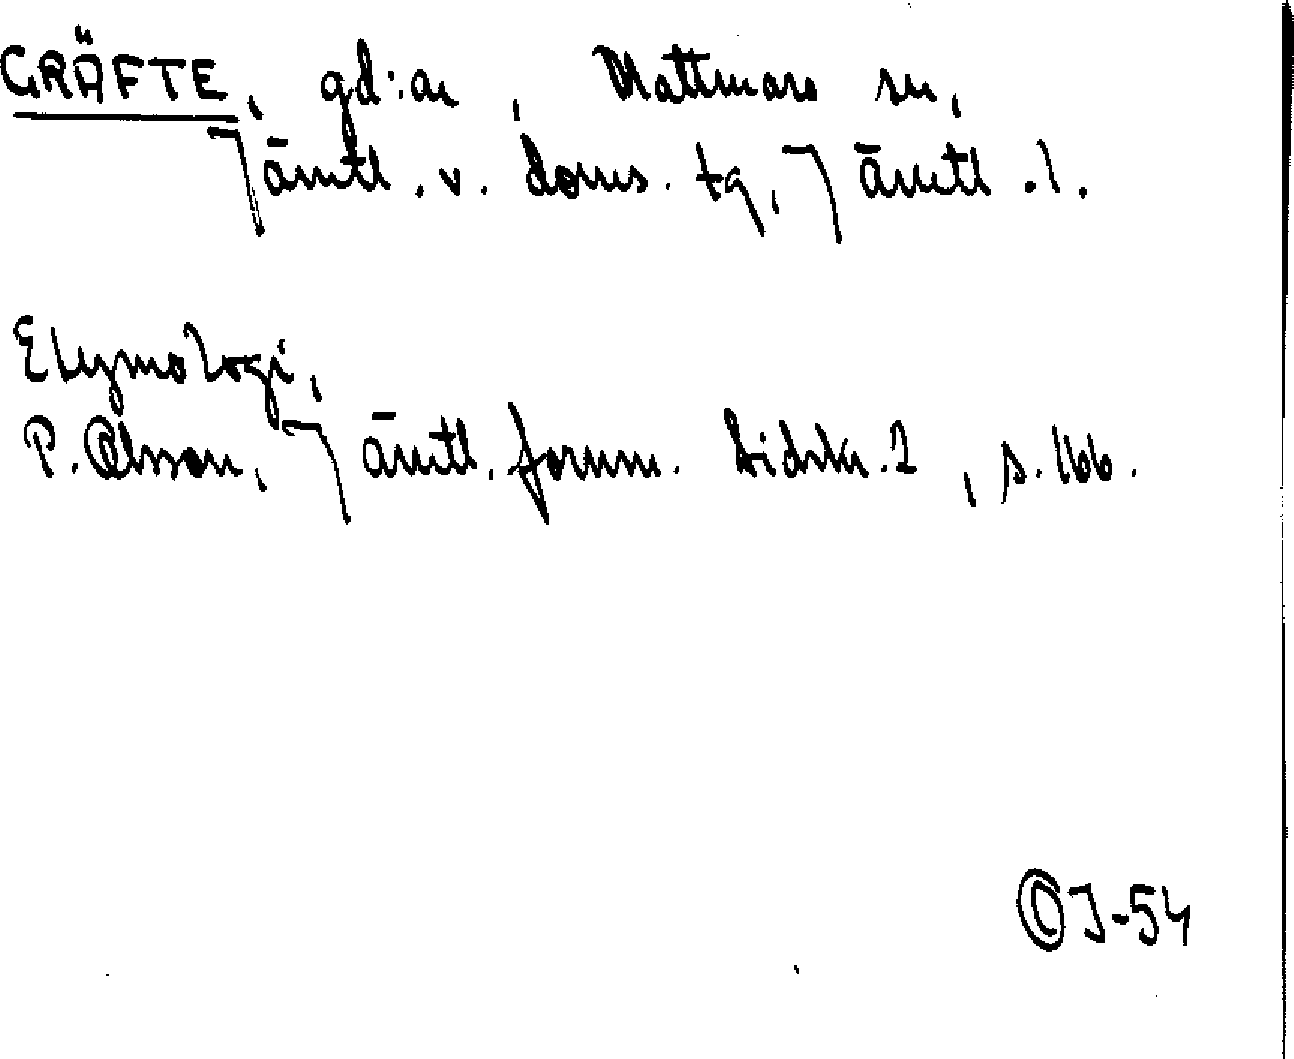 GRÄFTE, gd:ar, Mattmars sn,
Jämtl. v. doms. tg, Jämtl. l.
Etymologi,
P. Olsson, Jämtl. fornm. tidskr. 2, s. 166.
OJ-54